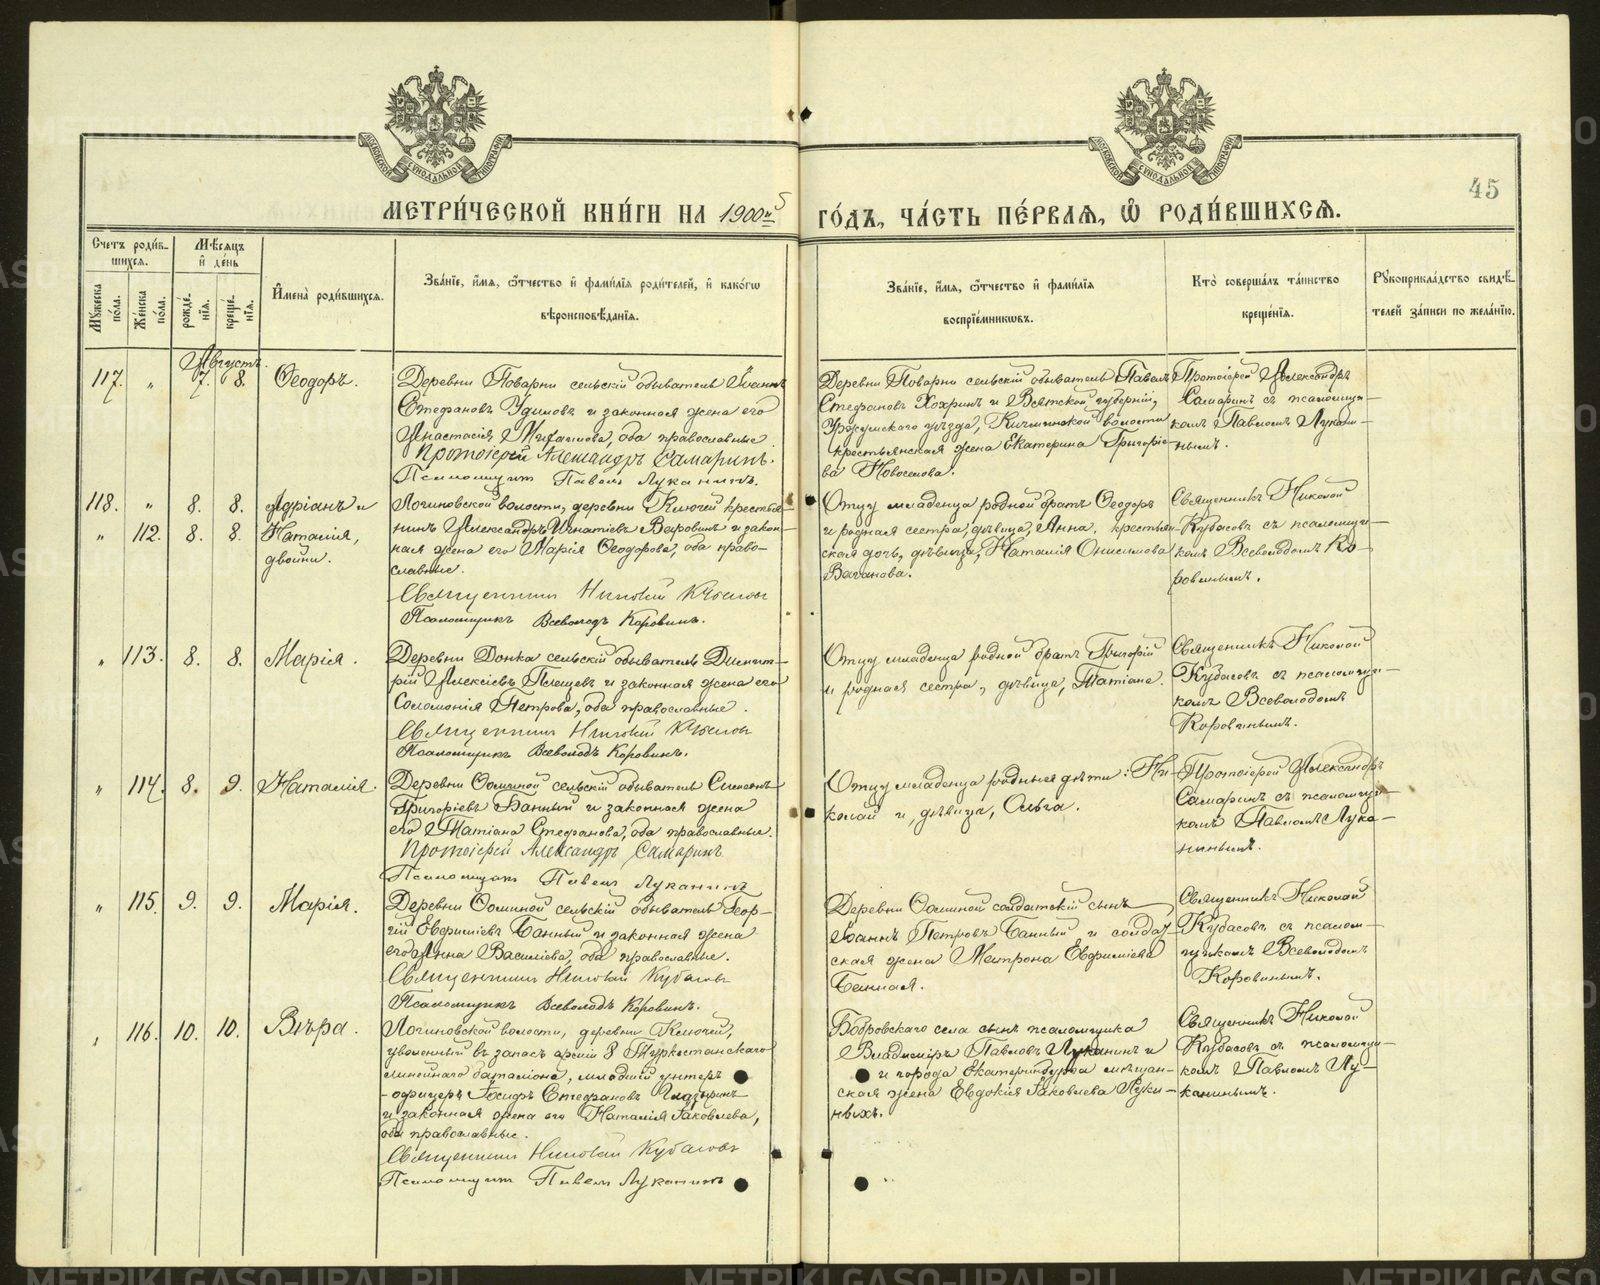 45
МЕТРИ́ЧЕСКОЙ КНИ́ГИ НА 1900 5 ГО́ДЪ, ЧА́СТЬ ПЕ́РВАЯ, Ѿ РОДИ́ВШИХСЯ.
Счетъ роди́в-
шихся.
Мѣ́сяцъ
и҆ де́нь
И҆мена̀ роди́вшихся.
Зва́нїе, и҆́мя, ѻ҆́тчество и҆ фами́лїя роди́телей, и҆ како́гѡ
вѣроисповѣ́данїя.
Зва́нїе, и҆́мя, ѻ҆́тчество и҆ фами́лїя
воспрїе́мникѡвъ.
Кто̀ соверша́лъ та́инство
креще́нїя.
Рꙋкоприкла́дство свидѣ́-
телей за́писи по жела́нїю.
Мꙋ́жеска
по́ла.
Же́нска
по́ла.
рожде́-
нїя.
креще́-
нїя.
Августъ.
117. „ 7. 8. Ѳеодоръ.
Деревни Поварни сельскій обыватель Іоаннъ
Стефановъ Удиловъ и законная жена его
Анастасія Михаилова, оба православные.
Протоіерей Александръ Самаринъ.
Псаломщикъ Павелъ Луканинъ.
Деревни Поварни сельскій обыватель Павелъ
Стефановъ Хохринъ и Вятской губерніи,
Уржумскаго уѣзда, волости
крестьянская жена Екатерина Григоріе-
ва Новоселова.
Протоіерей Александръ
Самаринъ съ псаломщи-
комъ Павломъ Лукани-
нымъ.
118. „ 8. 8. Адріанъ и
„ 112. 8. 8. Наталія,
двойни.
Логиновской волости, деревни Ключей крестья-
нинъ Александръ Игнатіевъ Вяровинъ и закон-
ная жена его Марія Ѳеодорова, оба право-
славные.
Священникъ Николай Кубасовъ
Псаломщикъ Всеволодъ Коровинъ.
Отцу младенца родной братъ Ѳеодоръ
и родная сестра, дѣвица, Анна, крестьян-
ская дочь, дѣвица, Наталія Онисимова
Ваганова.
Священникъ Николай
Кубасовъ съ псаломщи-
комъ Всеволодомъ Ко-
ровинымъ.
„ 113. 8. 8. Марія.
Деревни Донка сельскій обыватель Димит-
рій Алексіевъ Плещевъ и законная жена его
Соломонія Петрова, оба православные.
Священникъ Николай Кубасовъ
Псаломщикъ Всеволодъ Коровинъ.
Отцу младенца родной братъ Григорій
и родная сестра, дѣвица, Татіана.
Священникъ Николай
Кубасовъ съ псаломщи-
комъ Всеволодомъ
Коровинымъ.
„ 114. 8. 9. Наталія.
Деревни Ѳоминой сельскій обыватель Симеонъ
Григоріевъ Банный и законная жена
его Татіана Стефанова, оба православные.
Протоіерей Александръ Самаринъ
Псаломщикъ Павелъ Луканинъ
Отцу младенца родныя дѣти: Ни-
колай и, дѣвица, Ольга.
Протоіерей Александръ
Самаринъ съ псаломщи-
комъ Павломъ Лука-
нинымъ.
„ 115. 9. 9. Марія.
Деревни Ѳоминой сельскій обыватель Геор-
гій Евфиміевъ Банный и законная жена
его Анна Василіева, оба православные.
Священникъ Николай Кубасовъ
Псаломщикъ Всеволодъ Коровинъ.
Деревни Ѳоминой солдатскій сынъ
Іоаннъ Петровъ Банный и солдат-
ская жена Матрона Евфиміева
Банная.
Священникъ Николай
Кубасовъ съ псалом-
щикомъ Всеволодомъ
Коровинымъ.
„ 116. 10. 10. Вѣра.
Логиновской волости, деревни Ключей,
уволенный въ запасъ арміи 8 Туркестанскаго
линейнаго баталіона, младшій унтеръ
-офицеръ Іосифъ Стефановъ
и законная жена его Наталія Іаковлева,
оба православные.
Священникъ Николай Кубасовъ
Псаломщикъ Павелъ Луканинъ
Бобровскаго села сынъ псаломщика
Владиміръ Павловъ Луканинъ и
и города Екатеринбурга мѣщан-
ская жена Евдокія Іаковлева Луки-
ныхъ.
Священникъ Николай
Кубасовъ съ псаломщи-
комъ Павломъ Лу-
канинымъ.